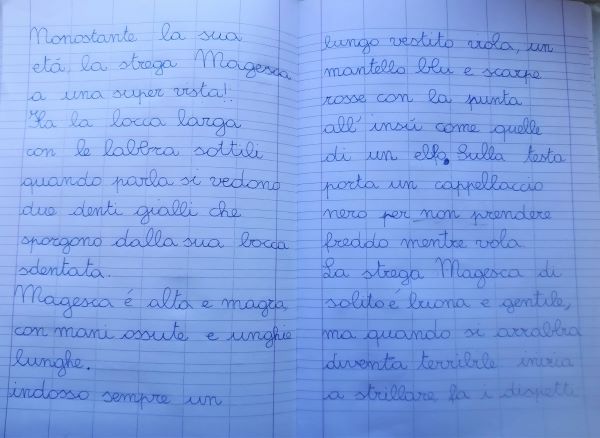 Nonostante la sua
etá, la strega Magesca
a una super vista!!
Ha la bocca larga
con le labbra sottili
quando parla si vedono
due denti gialli che
sporgono dalla sua bocca
sdentata.
Magesca é alta e magra,
con mani ossute e unghie
lunghe.
indosso sempre un
lungo vestito viola, un
mantello blu e scarpe
rosse con la punta
all'insú come quelle
di un elfo. Sulla testa
porta un cappellaccio
nero per non prendere
freddo mentre vola
La strega Magesca di
solito é buona e gentile,
ma quando si arrabbia
diventa terribile inizia
a strillare, fa i dispetti